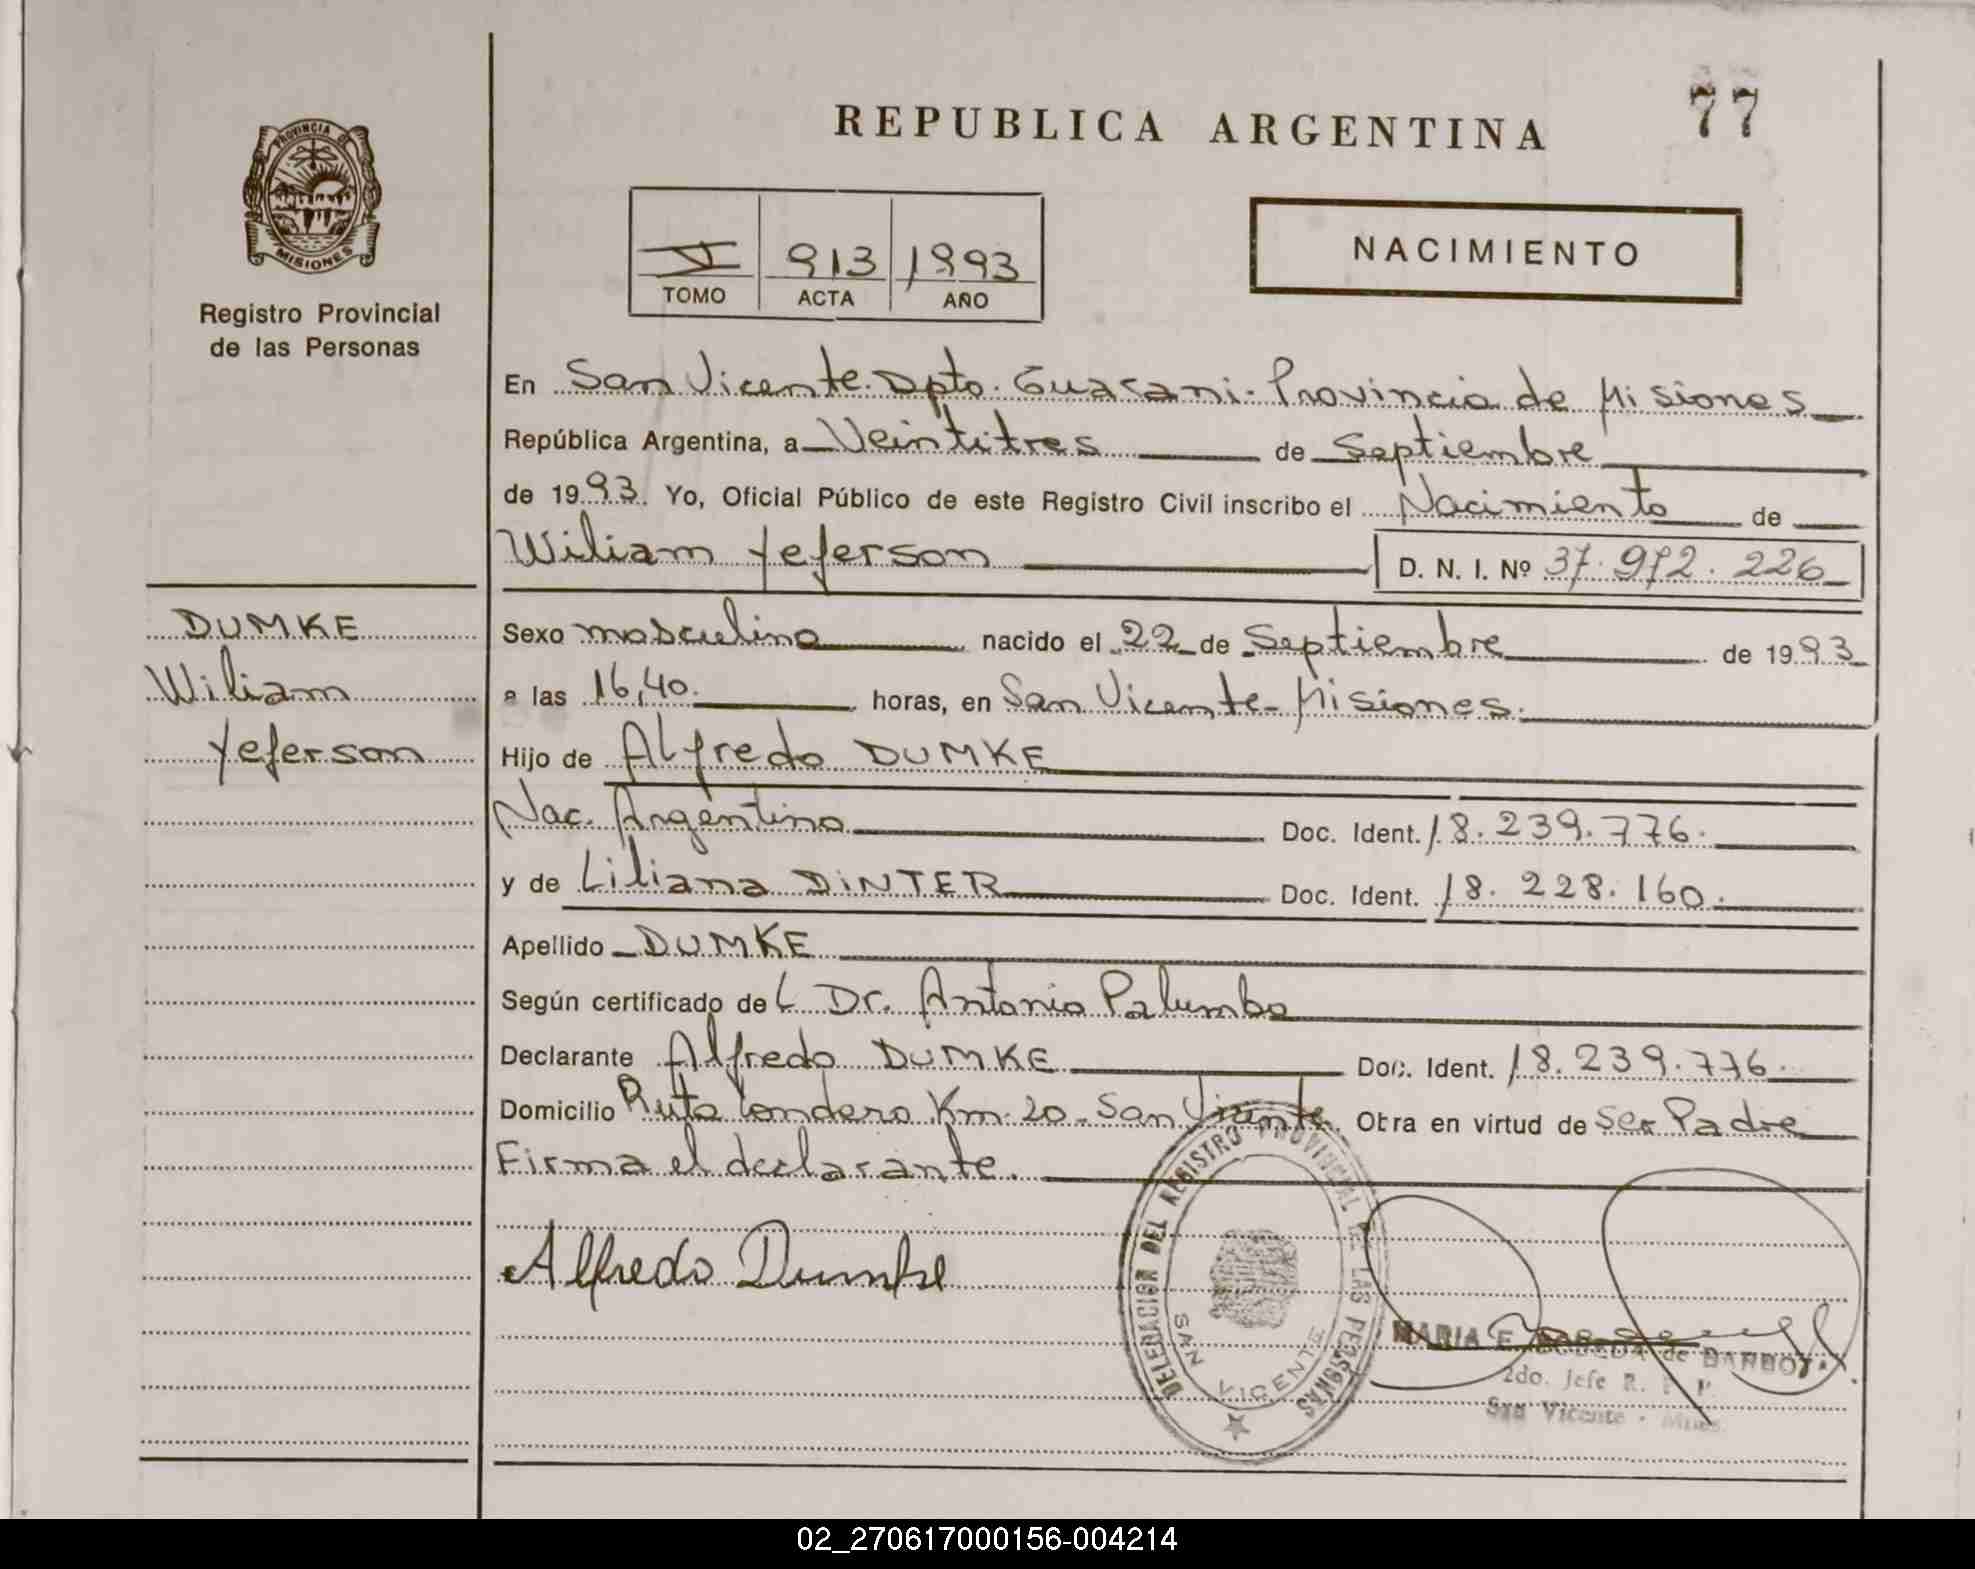 77
REPUBLICA ARGENTINA
PROVINCIA DE
MISIONES
Registro Provincial
de las Personas
913 1993
TOMO ACTA AÑO
NACIMIENTO
En San Vicente. Dpto. Guarani. Provincia de Misiones
República Argentina, a Veintitres de Septiembre
de 1993. Yo, Oficial Público de este Registro Civil inscribo el Nacimiento de
Wiliam Yeferson D. N. I. Nº 37.972.226
DUMKE
Wiliam
Yeferson
Sexo masculino nacido el 22 de Septiembre de 1993
a las 16,40. horas, en San Vicente-Misiones.
Hijo de Alfredo DUMKE
Nac. Argentino Doc. Ident. 18.239.776.
y de Liliana DINTER Doc. Ident. 18.228.160.
Apellido DUMKE
Según certificado del Dr. Antonio Palumbo
Declarante Alfredo DUMKE Doc. Ident. 18.239.776.
Domicilio Ruta Km. 20. San Vicente. Obra en virtud de Ser Padre
Firma el declarante.
Alfredo Dumke
DELEGACION DEL REGISTRO PROVINCIAL DE LAS PERSONAS
SAN VICENTE
MARIA E. de
2do. Jefe R. P. P.
San Vicente - Mnes.
02_270617000156-004214